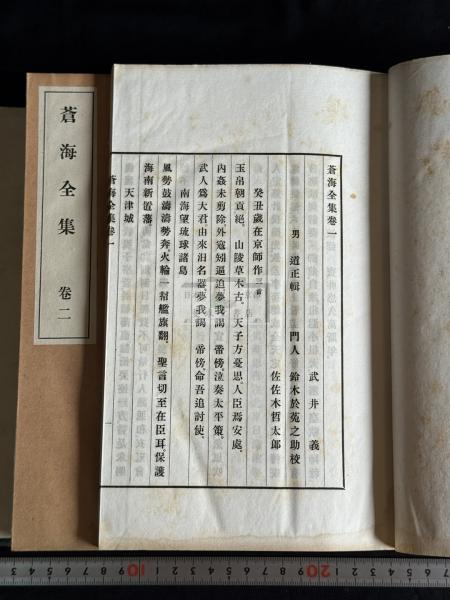 蒼海全集卷一
武井義
男 道正輯 門人 鈴木於菟之助校
佐佐木哲太郎
癸丑歲在京師作二首
玉帛朝貢絕。山陵草木古。天子方憂思。人臣焉安處。
內姦未剪除。外寇竊逼迫。夢我謁帝傍。泣奏太平策。
武人爲大君。由來汨名器。夢我謁帝傍。命吾追討使。
南海望琉球諸島
風勢鼓濤濤勢奔。火輪一帮艦旗翻。聖言切至在臣耳。保護
海南新置藩。
天津城
蒼海全集卷一
一
蒼海全集 卷二
10
20